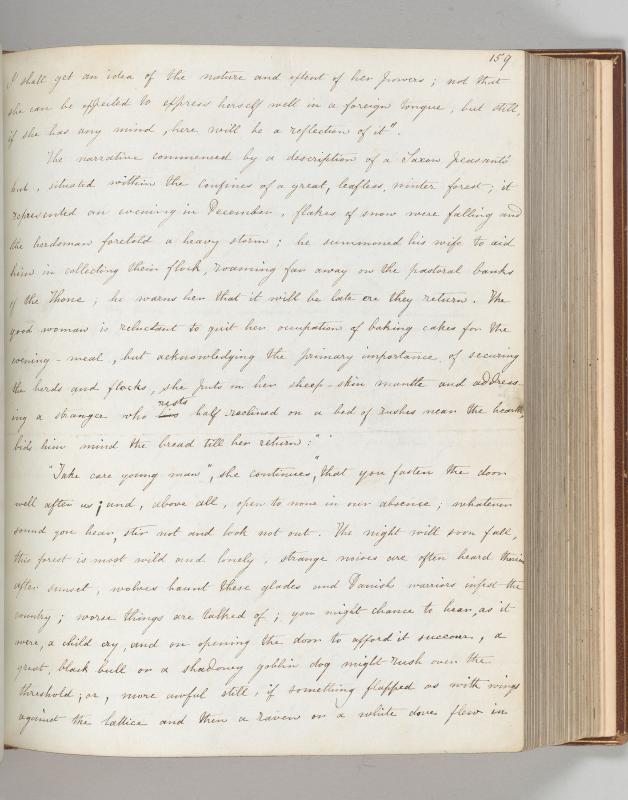 159
I shall get an idea of the nature and extent of her powers; not that
she can be expected to express herself well in a foreign tongue, but still,
if she has any mind, here will be a reflection of it".
The narrative commenced by a description of a Saxon peasant's
hut, situated within the confines of a great, leafless, winter forest; it
represented an evening in December, flakes of snow were falling and
the herdsman foretold a heavy storm; he summoned his wife to aid
him in collecting their flock, roaming far away on the pastoral banks
of the Thone; he warns her that it will be late ere they return. The
good woman is reluctant to quit her occupation of baking cakes for the
evening-meal, but acknowledging the primary importance of securing
the herds and flocks, she puts on her sheep-skin mantle and address-
ing a stranger who rests half-reclined on a bed of rushes near the hearth,
bids him mind the bread till her return:"
"Take care young man", she continues, "that you fasten the door
well after us; and, above all, open to none in our absence; whatever
sound you hear, stir not and look not out. The night will soon fall,
this forest is most wild and lonely, strange noises are often heard therein
after sunset, wolves haunt these glades and Danish warriors infest the
country; worse things are talked of; you might chance to hear, as it
were, a child cry, and on opening the door to afford it succour, a
great, black bull or a shadowy goblin dog might rush over the
threshold; or, more awful still, if something flapped as with wings
against the lattice and then a raven or a white dove flew in